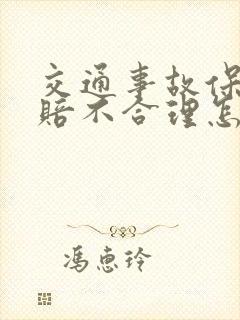 交通事故保
赔不合理怎
冯惠玲